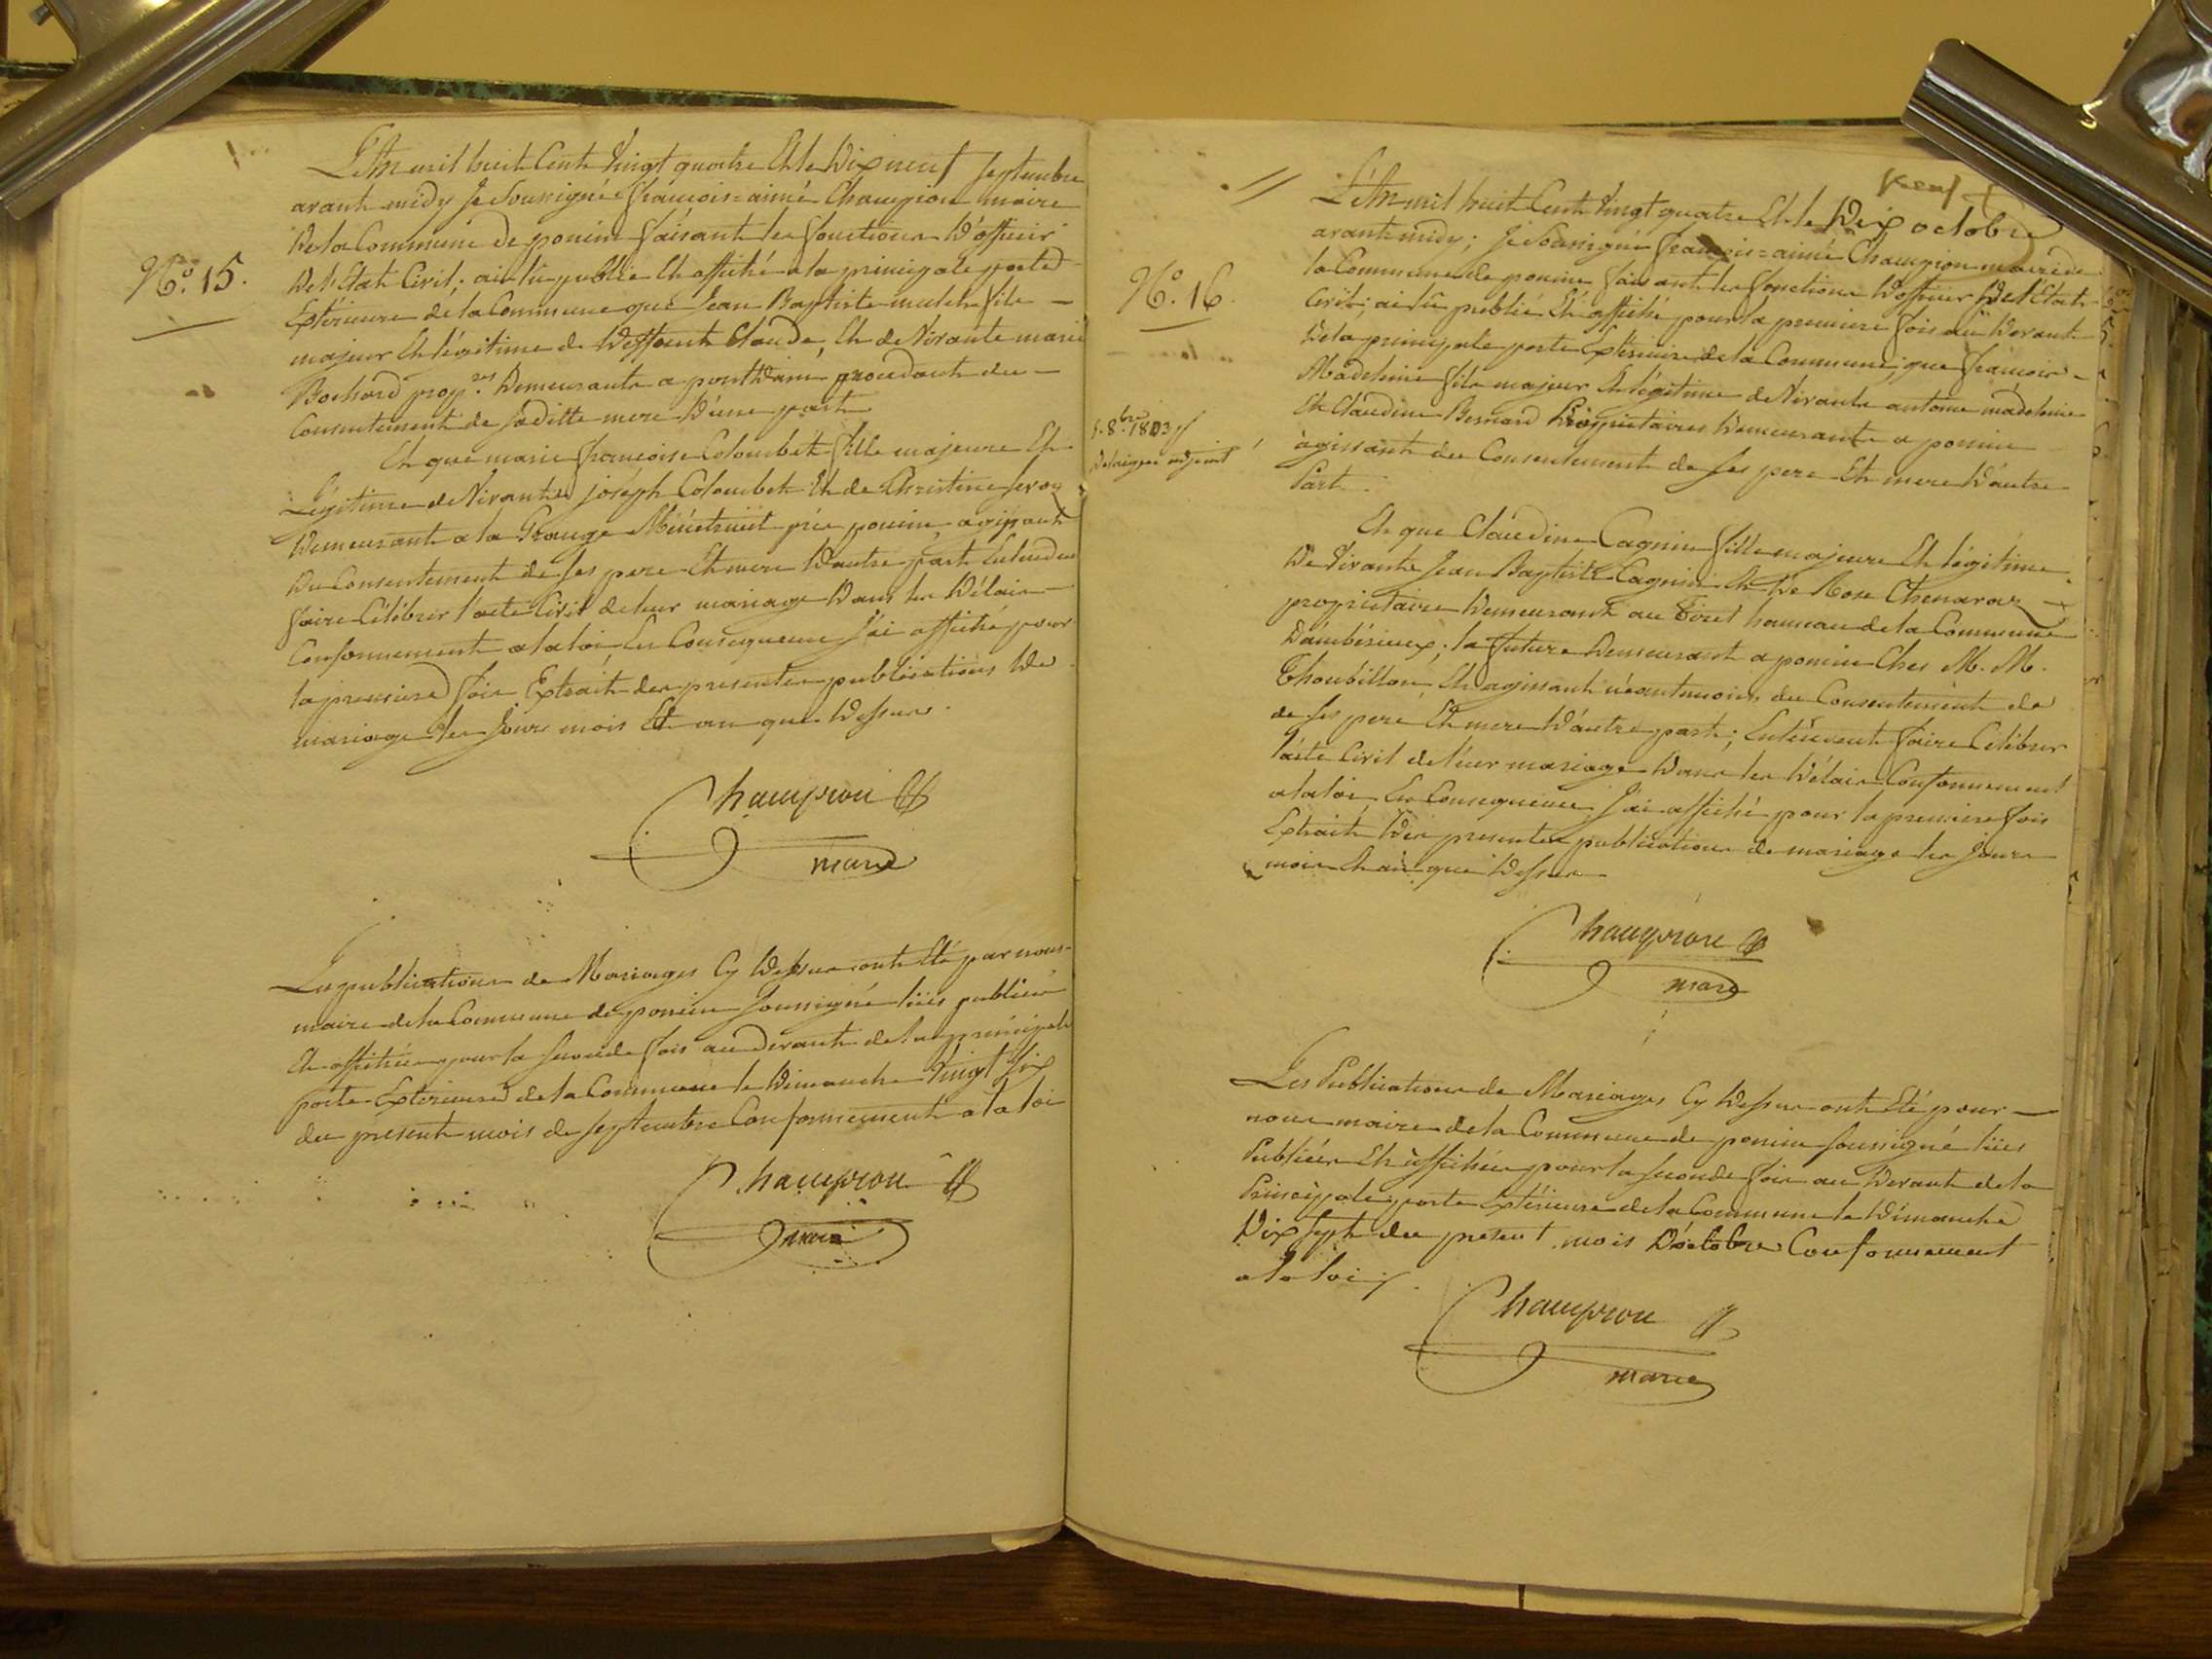 L'An mil huit Cent Vingt quatre Et le Dix neuf Septembre
avant midy Je Soussigné françois=aimé Champion maire
De la Commune de poncin faisant les fonctions D'officier
De l'Etat Civil; ai lu publié Et affiché a la principale porte
Extérieure de la Commune que Jean Baptiste fils —
majeur Et légitime de Deffunt Claude, Et de Vivante marie
Bochard prop.res Demeurants a pontdain procedant du —
Consentement de Saditte mere D'une part
Nº. 15.
Et que marie françoise Colombet fille majeure Et
Légitime de Vivants joseph Colombet Et de Christine
Demeurant a la Grange près poncin agissant
Du Consentement de Ses pere Et mere D'autre part Entendent
faire Célébrer l'acte Civil de leur mariage Dans les Délais —
Conformement a la loi En Consequence J'ai affiché pour
la premiere fois Extrait des presentes publications De
mariage les Jour mois Et an que Dessus.
Champion
maire
Les publications de Mariages Cy Dessus ont Eté par nous-
maire de la Commune de poncin Soussigné lües publiées
Et affichées pour la Seconde fois au Devant de la principale
porte Exterieure de la Commune le Dimanche Vingt Six
du present mois de Septembre Conformement a la loi
Champion
maire
L'An mil huit Cent Vingt quatre Et le Dix octobre
avant midy; Je Soussigné françois=aimé Champion maire de
la Commune de poncin faisant les fonctions D'officier De l'Etat
Civil; ai lû publié Et affiché pour la premiere fois au Devant
De la principale porte Exterieure de la Commune; que françois -
Madeleine fils majeur Et légitime de Vivants antoine madeleine
Et Claudine Bernard Propriétaires Demeurants a poncin
agissant du Consentement de Ses pere Et mere D'autre
Part.
Nº. 16.
8.bre 1803
adjoint
Et que Claudine Cagnin fille majeure Et légitime
De Vivants Jean Baptiste Cagnin Et De Rose Chenavaz —
propriétaires Demeurants au hameau de la Commune
D'ambérieux; la future Demeurant a poncin Ches M. M.
Thoubillon, Et agissant néantmoins du Consentement de
de Ses pere Et mere D'autre part; Entendent faire Célébrer
l'acte Civil de leur mariage Dans les Délais Conformement
a la loi En Consequence J'ai affiché pour la premiere fois
Extrait Des presentes publications de mariage les Jours
mois Et an que Dessus
Champion
maire
Les Publications de Mariages Cy Dessus ont Eté pour —
nous maire de la Commune de poncin Soussigné lües
Publiées Et affichées pour la Seconde fois au Devant de la
Principale porte Extérieure de la Commune le Dimanche
Dix Sept du present mois D'octobre Conformement
a la loi.
Champion
maire